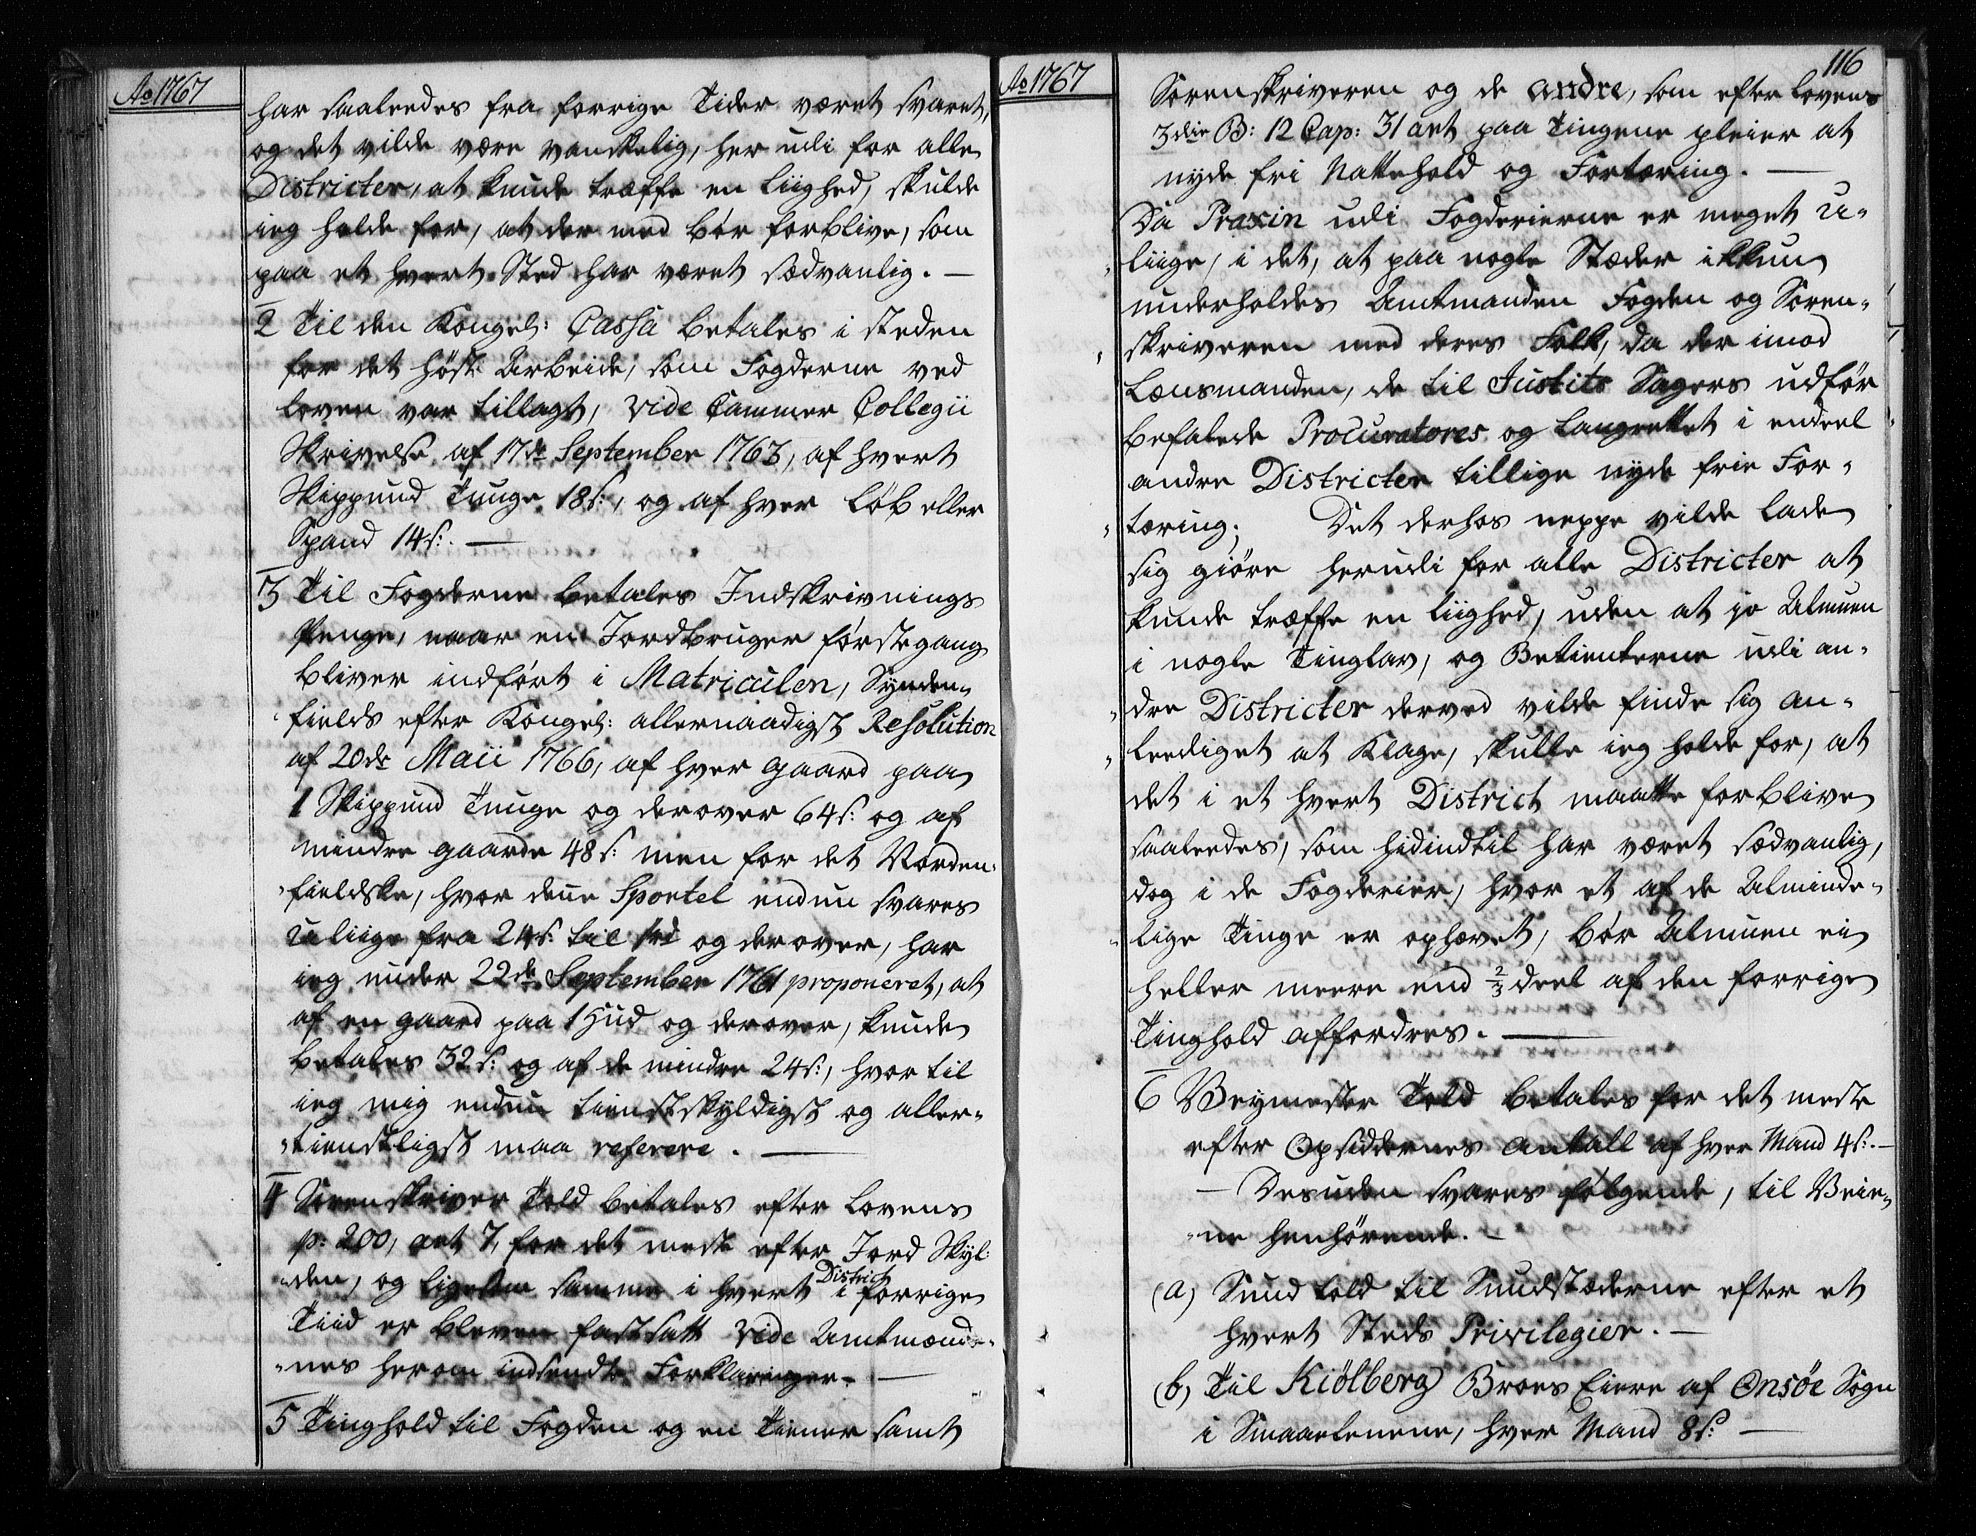 Ao 1767
har saaledes fra forrige Tider været svaret,
og det vilde være vanskelig, her udi for alle
Districter, at kunde træffe en liighed, skulde
ieg holde for, at der med bør forblive, som
paa et hvert Sted har været sædvanlig. —
2 Til den Kongel: Cassa betales i steden
for det höst Arbeide, som Fogderne ved
loven var tillagt, vide Cammer Collegii
Skrivelse af 17de September 1763, af hvert
Skippund Tunge 18s:, og af hver Løb eller
Spand 14s:. —
3 Til Fogderne betales Indskrivnings
Penge, naar en Jordbruger førstegang
bliver indført i Matriculen, Synden-
fields efter Kongel: allernaadigst Resolution
af 20de Maii 1766, af hver gaard paa
1 Skippund Tunge og derover 64s: og af
mindre gaarde 48s: men for det Norden-
fieldske, hvor denne Sportel endnu svares
uliige fra 24s: til 1rd og derover, har
ieg under 22de September 1761 proponeret, at
af en gaard paa 1 Hud og derover, kunde
betales 32s: og af de mindre 24s:, hvor til
ieg mig endnu tienstskyldigst og aller-
tienstligst maa referere. —
4 Sorenskriver Told betales efter Lovens
p: 200, art 7, for det meste efter Jord Skyl-
den, og ligesom samme i hvert District i forrige
Tiid er bleven fastsatt vide Amtmænde-
nes herom indsendte Forklaringer. —
5 Tinghold til Fogden og en Tiener samt
Ao 1767
116
Sorenskriveren og de andre, som efter Lovens
3die B: 12 Cap: 31 art paa Tingene pleier at
nyde fri Nattehold og Fortæring. —
Da Praxin udi Fogderierne er meget u-
liige, i det, at paa nogle Stæder ikkun
underholdes Amtmanden Fogden og Soren-
skriveren med deres Folk, da der imod
Lænsmanden, de til Justits Sagers udfør
befalede Procuratores og Laugrettet i endeel
andre Districter tillige nyde frie For-
tæring; Det derhos neppe vilde lade
sig giöre herudi for alle Districter at
kunde træffe en liighed, uden at jo Almuen
i nogle Tinglav, og Betienterne udi an-
dre Districter derved vilde finde sig an-
leediget at Klage, skulle ieg holde for, at
det i et hvert District maatte forblive
saaleedes, som hidindtil har været sædvanlig,
dog i de Fogderier, hvor et af de Alminde-
lige Tinge er ophævet, bør Almuen ei
heller meere end 2/3 deel af den forrige
Tinghold affordres. —
6 Veymester Told betales for det meste
efter Opsiddernes Antall af hver Mand 4s:. —
— Desuden svares følgende, til Veie-
ne henhörende. —
(a) Sund told til Sundstæderne efter et
hvert Steds Privilegier. —
(b) Til Kiölberg Broes Eiere af Onsöe Sogn
i Smaaelenene, hver Mand 8s: —